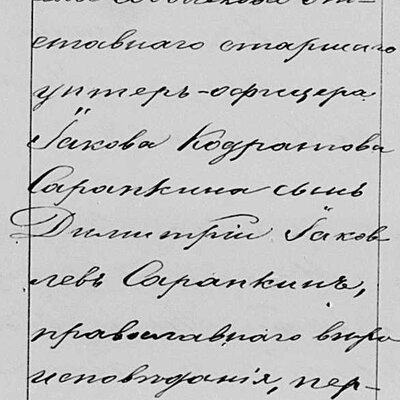 ставнаго старшаго
унтеръ-офицера
Іакова Кодратова
Сарапкина сынъ
Димитрій Іаков-
левъ Сарапкинъ,
православнаго вѣро
исповѣданія, пер-